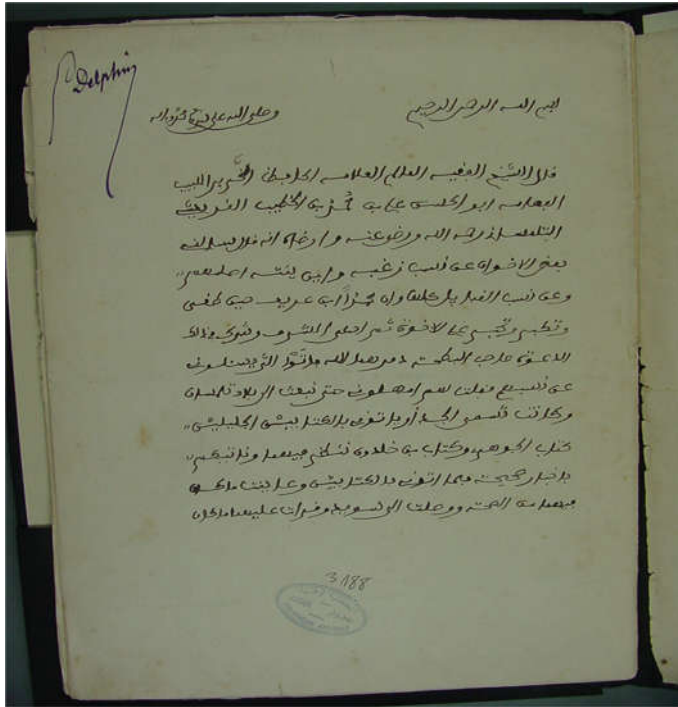 Delphin
بسم الله الرحمن الرحيم وصلى الله على سيدنا محمد وآله
قال الشيخ الفقيه العالم العلامة الحافظ النحرير اللبيب
الفهامة ابو الحسن علي بن محمد بن الخطيب القريشي
التلمساني رحمه الله ورضي عنه وارضاه انه قال سالني
بعض الاخوان عن نسب زغبة واين ينتسب اصلهم
وعن نسب القبايل كلها وان محمدا بن عريف حين طغى
وتكبر وتجبر على الاخوة ثم ادعى الشرف وشرع في تلك
الدعوة صاحب البطحة دمرهما الله فاتوا الي يسئلوني
عن نسبهم فقلت لهم امهلوني حتى نبعث الى بلاد تلمسان
وكانت تسمى الجدار ياتوني بالكتابين الجليلين
كتاب الجوهر وكتاب بن خلدون ننظر فيهما وناتيكم
باخبار صحيحة فلما اتوني بالكتابين وعاينت ما كان
فيهما من الصحة ووصلت الى سويد وقرات عليهم ما كان
3188